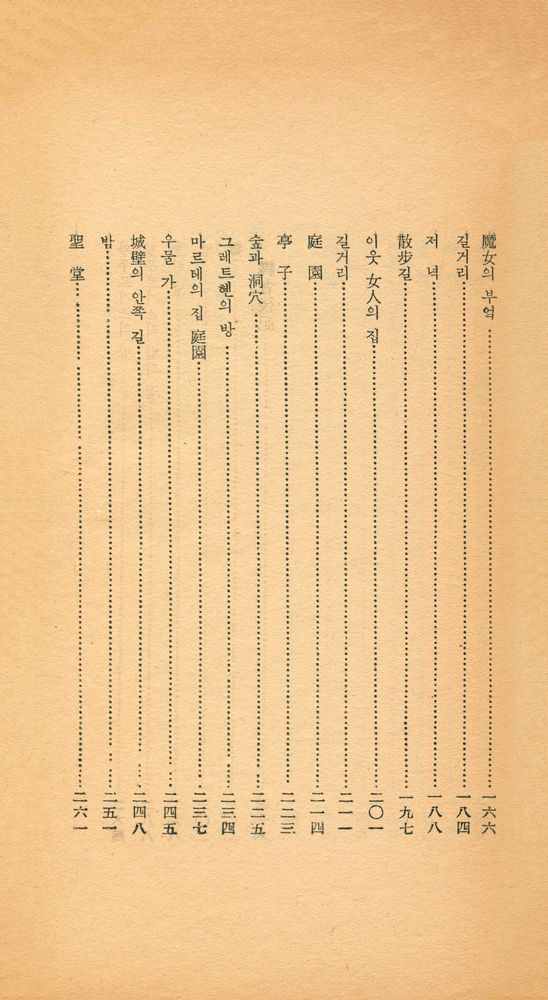 魔女의 부엌 一六六
길거리 一八四
저녁 一八八
散步길 一九七
이웃 女人의 집 二〇一
길거리 二一一
庭園 二一四
亭子 二二三
숲과 洞穴 二二五
그레트헨의 방 二三四
마르테의 집 庭園 二三七
우물 가 二四五
城壁의 안쪽 길 二四八
밤 二五一
聖堂 二六一